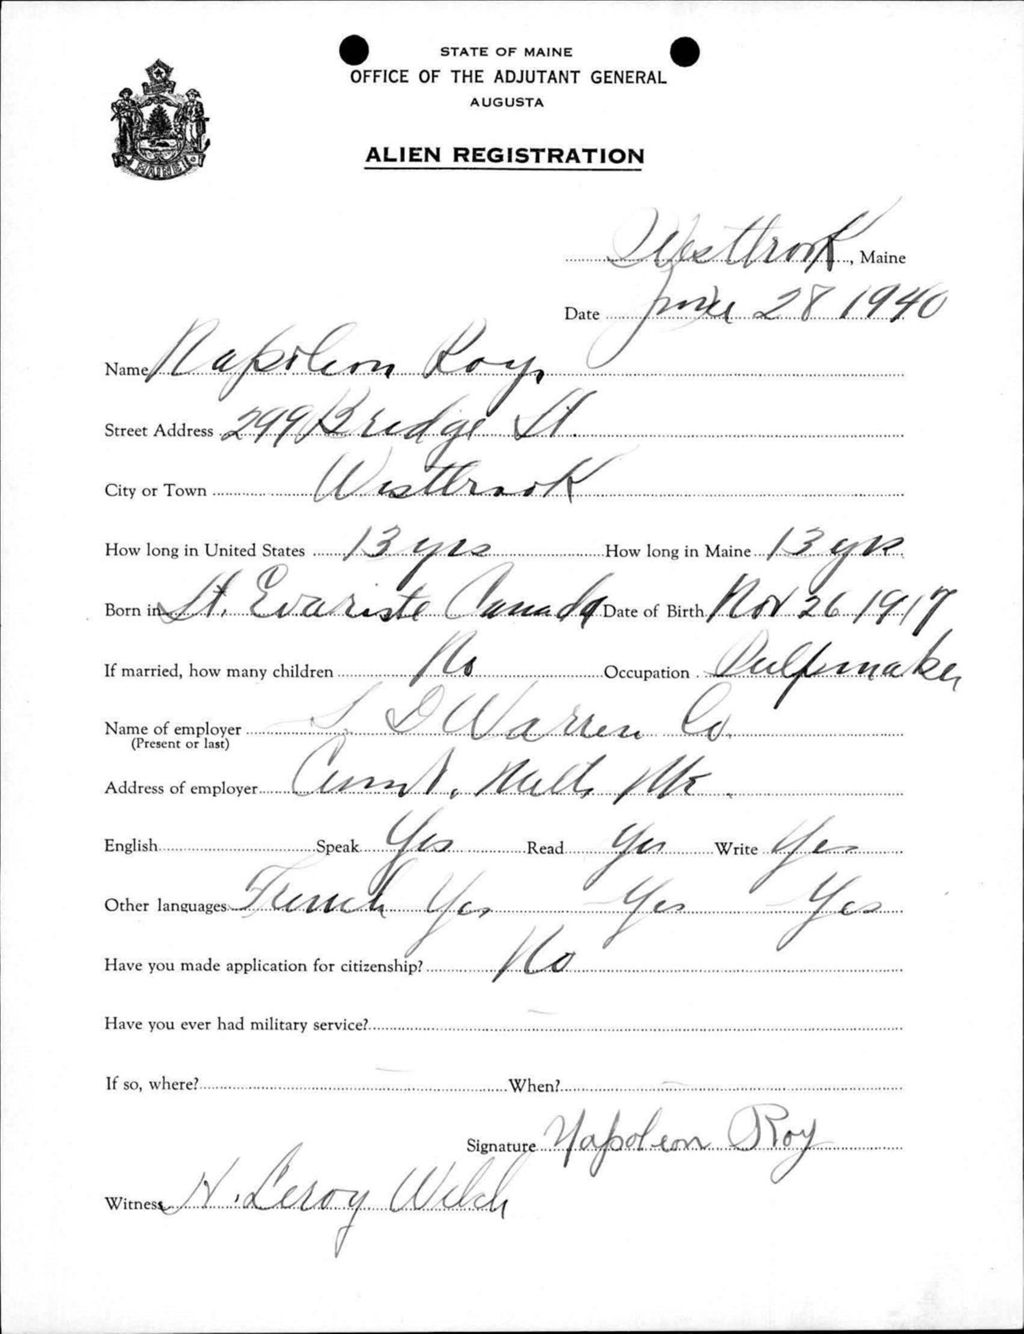 STATE OF MAINE
OFFICE OF THE ADJUTANT GENERAL
AUGUSTA
ALIEN REGISTRATION
MAINE
Westbrook, Maine
Date June 28 1940
Name Napoleon Roy,
Street Address 299 Bridge St.
City or Town Westbrook
How long in United States 13 yrs How long in Maine 13 yrs
Born in St. Evariste Canada Date of Birth Nov 26 1917
If married, how many children No Occupation Pulpmaker
Name of employer S. D Warren Co.
(Present or last)
Address of employer Cumb. Mills Me.
English Speak Yes Read Yes Write Yes
Other languages French Yes Yes Yes
Have you made application for citizenship? No
Have you ever had military service? –
If so, where? – When? –
Signature Napoleon Roy
Witness H. Leroy Welch